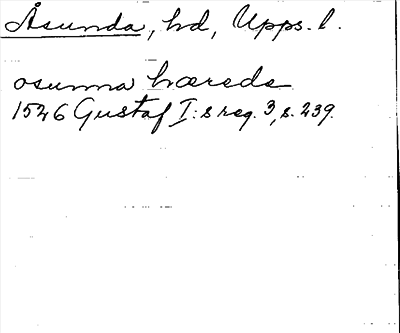 Åsunda, hd, Upps. l.
osunna hæreds
1526 Gustaf I:s reg. 3, s. 239.